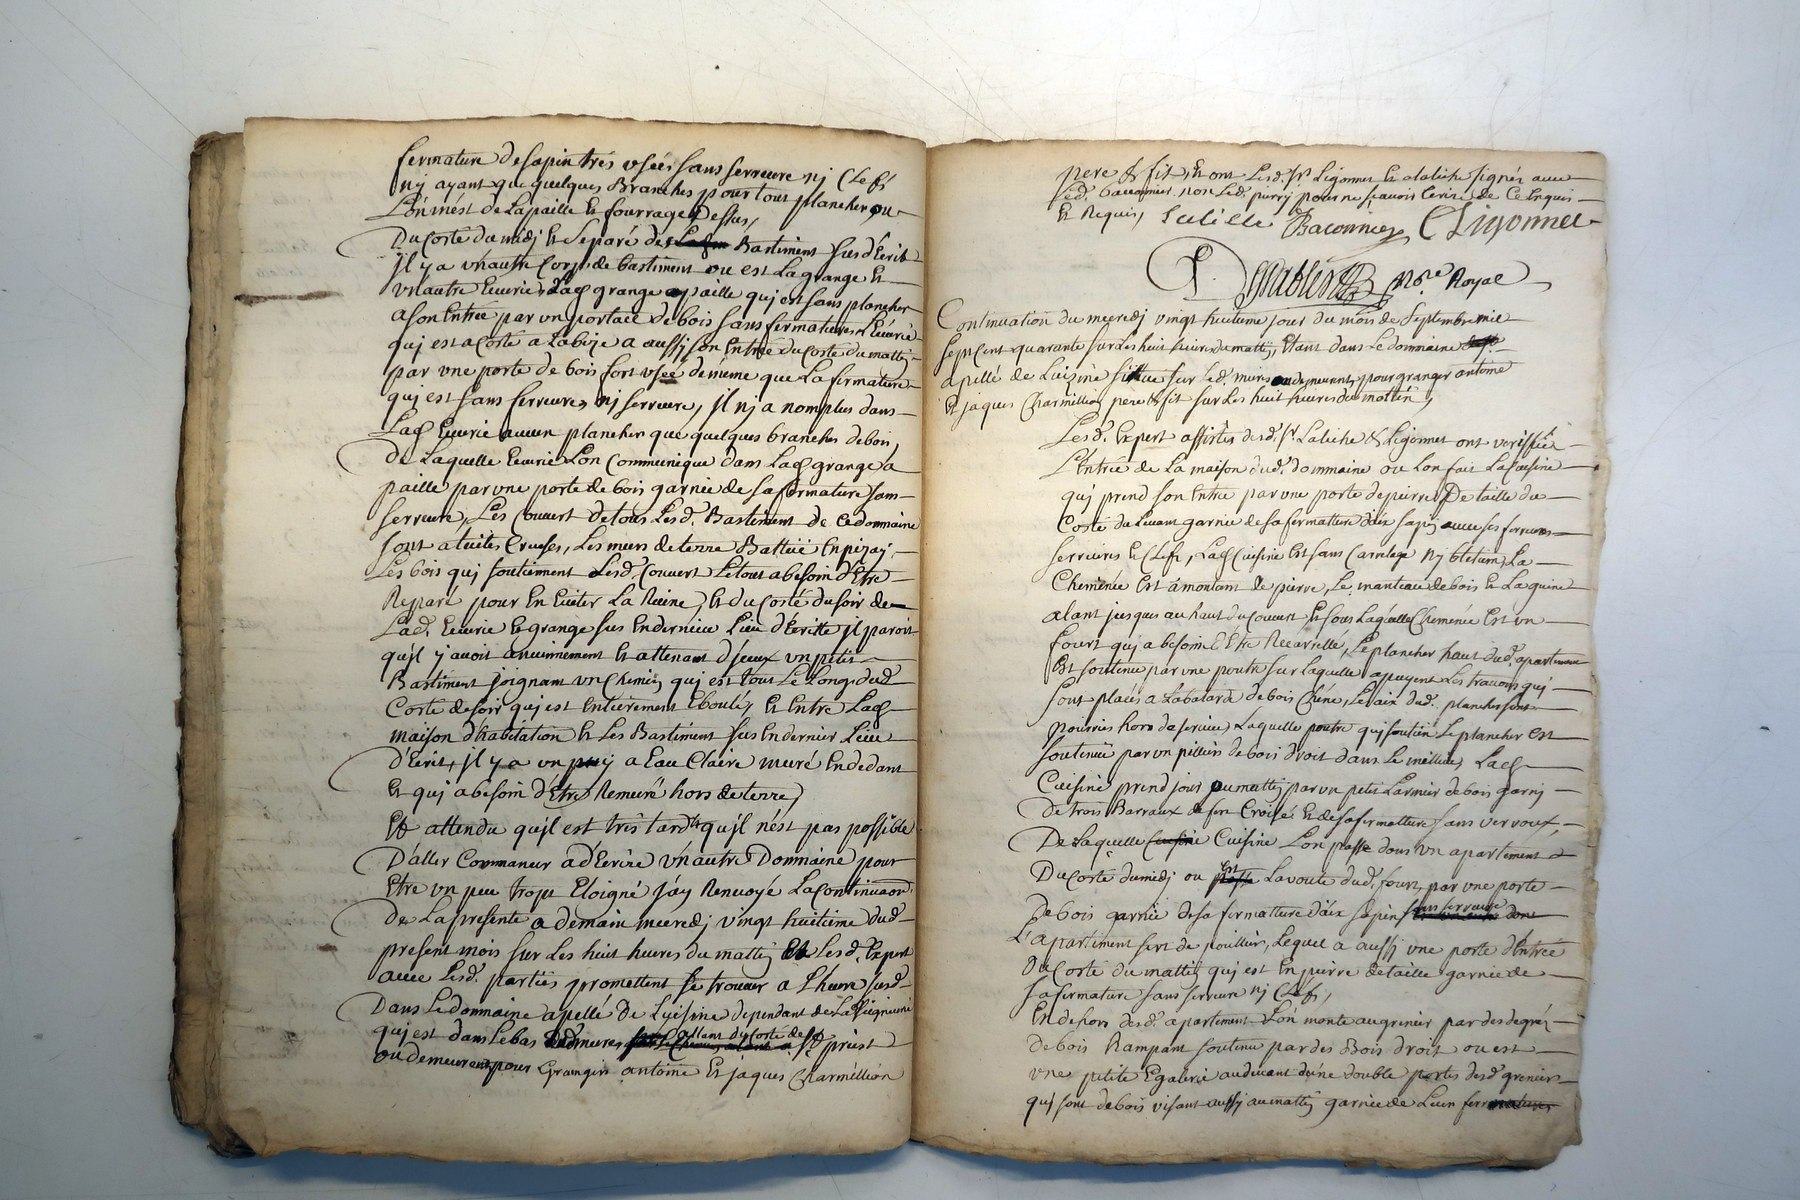 fermature de sapin trés usées sans serreure nj Clefs
nj ayant que quelques Branches pour tous plancher ou
L'on met de La paille & fourrage Dessus,
Du Costé du midj & Separé des Bastiment sus d'Ecrit
jl y a un autre Corps de bastiment ou est La grange &
un autre Ecurie, Lad. grange a paille quj est sans plancher
a son Entrée par un portail de bois sans fermature, L'Ecurie
quj est a Costé a La bize a aussj son Entrée du Costé du mattin
par une porte de bois fort usée de meme que La fermature
quj est sans ferrure, nj serreure, jl nj a nomplus dans
Lad. Ecurie aucun plancher que quelques branches de bois,
de Laquelle Ecurie L'on Communique dans Lad. grange a
paille par une porte de bois garnie de sa fermature sans
serreure, Les Couvert de tous Lesd. Bastiment de ce dommaine
sont a tuiles Creuses, Les murs de terre Battüe En pizay,
Les bois quj soutiennent Lesd. Couvert Le tout a besoin d'Etre
Reparé pour En Eviter La Ruine, & du Costé du soir de
Lad. Ecurie & grange sus En dernier Lieu d'Ecritte jl paroit
qu'jl y avoit anciennement & attenant d'jceux un petit
Bastiment joignant un Chemin quj est tout Le Long dud.
Costé de soir quj est Entierement Eboulé, & Entre Lad.
maison d'habitation & Les Bastiment sus En dernier Lieu
d'Ecrit, jl y a un puy a Eau Claire muré En dedant
& quj a besoin d'Etre Remuré hors de terre,
Et attendu qu'jl est trés tard & qu'jl n'est pas possible
D'aller Commancer a d'Ecrire un autre Dommaine pour
Etre un peu trop Eloigné J'ay Renvoyé La Continuaon.
de La presente a demain mecredj vingt huitieme dud.
present mois sur Les huit heures du mattin Et Lesd. Expert
avec Lesd. parties promettent se trouver a L'heure susd.
Dans Le dommaine apellé De Luisine dependant de La Seigneurie
quj est dans Le bas allant du Costé de St priest
ou demeurent pour Granger antoine & jaques Charmillion
pere & fils, & ont Lesd. Srs. Ligonnet & Laliche signés avec
led. baconnier non Led. pour ne sçavoir Ecrire de Ce Enquis
& Requis, Baconnier CLigonnet
Nore. Royal
Continuation du mecredj vingt huitieme jour du mois de Septembre mil
sept Cent quarante sur Les huit heures du mattin, Etant dans Le dommaine
apellé de Luisine sittué sur Led. murs ou demeurent pour granger antoine
& jaques Charmillion pere & fils sur Les huit heures du mattin,
Lesd. Expert assistés desd. Sr. Laliche & Ligonnet ont veriffié
L'Entrée de La maison dud. dommaine ou L'on fait La Cuisine
quj prend son Entrée par une porte de pierre De taille du
Costé du Levant garnie de sa fermatture d'aix sapin avec ses ferrures
serrures & Clefs, Lad. Cuisine est sans Carrelage nj betum, La
Cheminée est a montant de pierre, Le manteau de bois & La quine
alant jusques au haut du Couvert & sous Laquelle Cheminée Est un
fourt quj a besoin d'Etre Recarrellé, Le plancher haut dud. apartement
Est soutenu par une poutre sur Laquelle apuyent Les travons quj
sont placés a La batarde de bois Chêne, Les aix dud. plancher sont
pourries hors de service, Laquelle poutre quj soutient Le plancher est
soutenüe par un pillier de bois droit dans Le millieu, Lad.
Cuisine prend jour au mattin par un petit Larmier de bois garnj
de trois Barraux de fer Croisé & de sa fermatture sans verroux,
De Laquelle Cuisine L'on passe dans un apartement
Du Costé du midj ou Est La voute dud. fourt, par une porte
De bois garnie de sa fermatture d'aix sapin sans serreure dont
L'apartement sert de poullier, Lequel a aussj une porte d'Entrée
Du Costé du mattin quj est En pierre de taille garnie de
sa fermature sans serreure nj Clefs,
En dehors desd. apartement L'on monte au grenier par des degrés
de bois Rampant soutenu par des Bois droit ou est
une petite Egalerie au devant d'une double portes desd. greniers
quj sont de bois visant aussj au mattin garnie de Leur fermatures